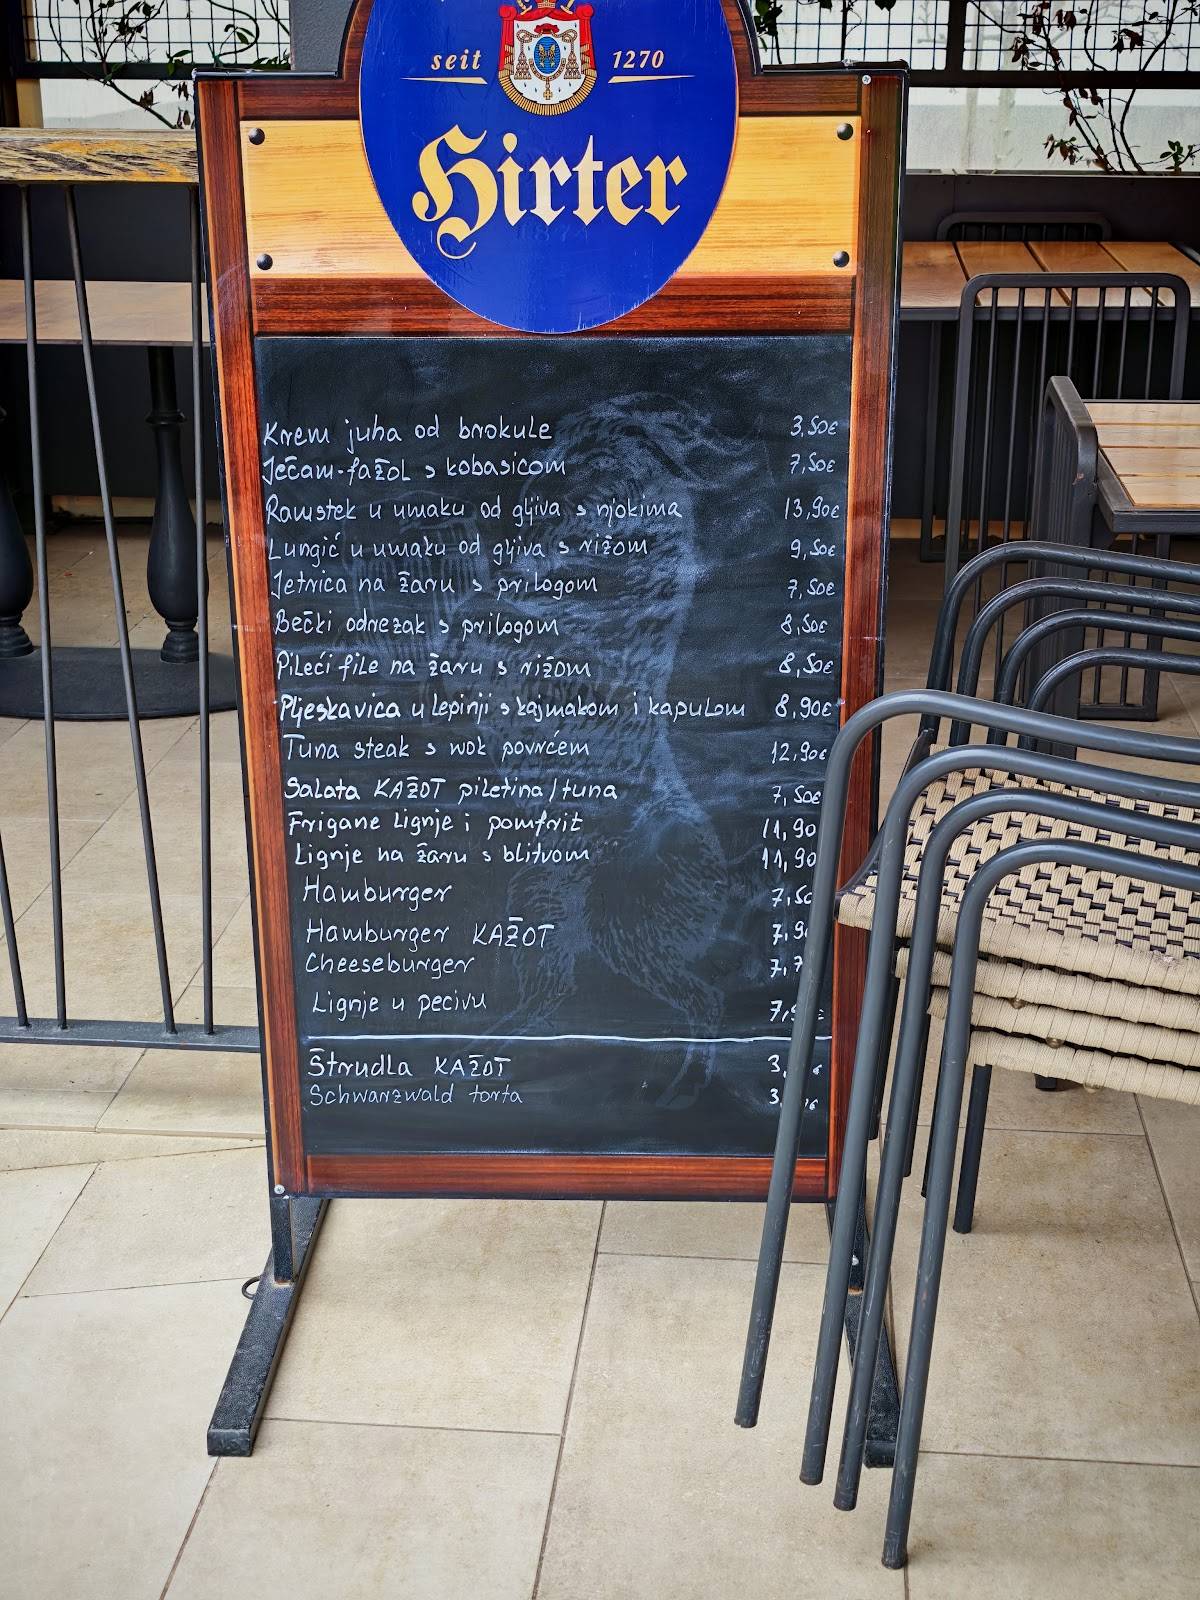 seit 1270
Hirter
Krem juha od brokule 3,50€
Ječam-fažol s kobasicom 7,50€
Ramstek u umaku od gljiva s njokima 13,90€
Lungić u umaku od gljiva s rižom 9,50€
Jetrica na žaru s prilogom 7,50€
Bečki odrezak s prilogom 8,50€
Pileći file na žaru s rižom 8,50€
Pljeskavica u lepinji s kajmakom i kapulom 8,90€
Tuna steak s wok povrćem 12,90€
Salata KAŽOT piletina/tuna 7,50€
Frigane lignje i pomfrit 11,90
Lignje na žaru s blitvom 11,90
Hamburger 7,50
Hamburger KAŽOT 7,90
Cheeseburger
Lignje u pecivu
Štrudla KAŽOT
Schwarzwald torta